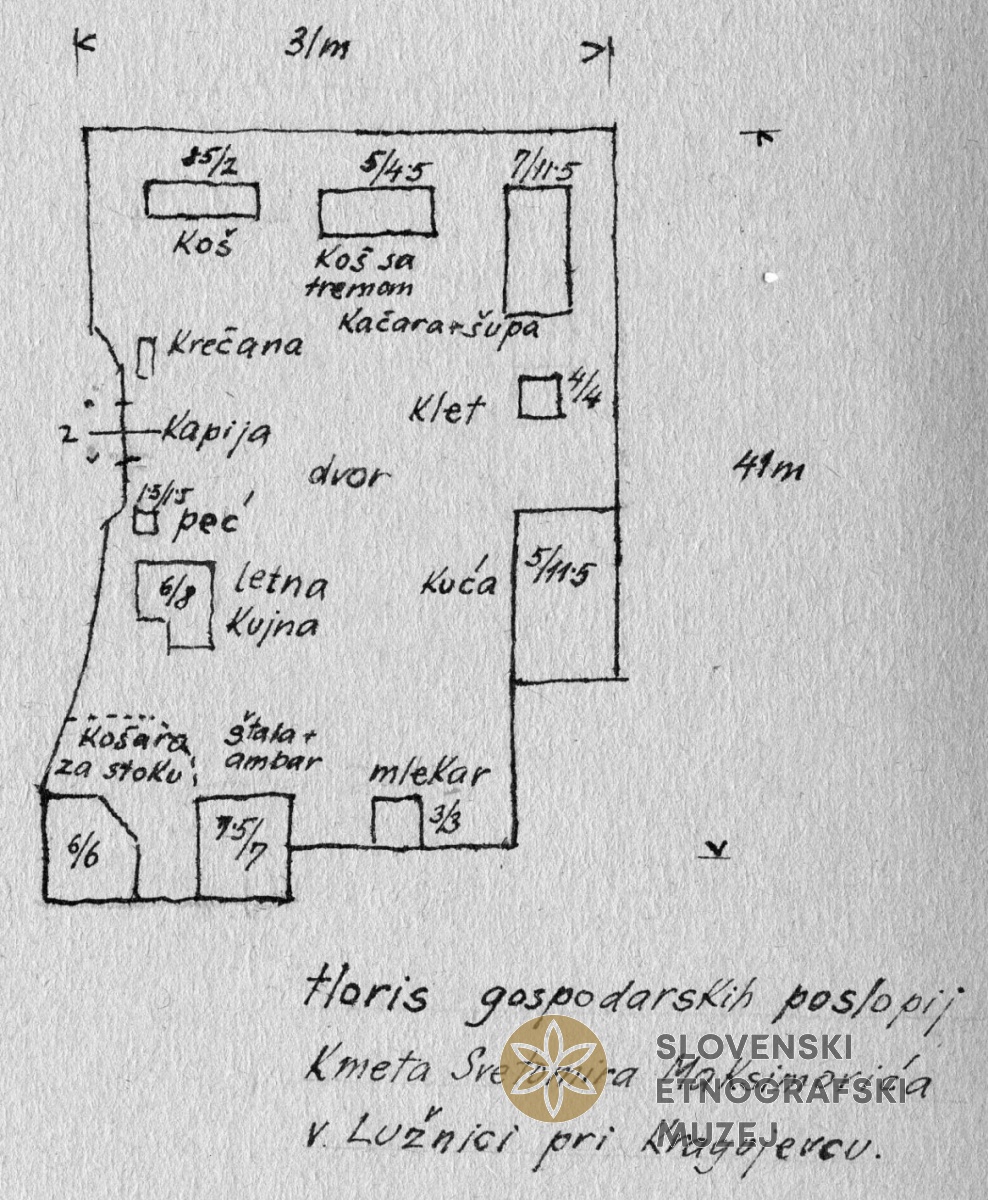 31m
85/2
5/4·5
7/11·5
Koš
Koš sa
tremom
Kačara+šupa
Krečana
4/4
Klet
2
Kapija
dvor
41m
1·5/1·5
peć
5/11·5
6/8
letna
Kujna
Kuća
Košara
za stoku
štala+
ambar
mlekar
6/6
7·5/7
3/3
tloris gospodarskih poslopij
Kmeta Svetomira Maksimovića
v Lužnici pri Kragujevcu.
SLOVENSKI
ETNOGRAFSKI
MUZEJ